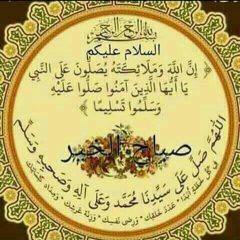 بسم الله الرحمن الرحيم
السلام عليكم
﴿ إِنَّ اللَّهَ وَمَلَائِكَتَهُ يُصَلُّونَ عَلَى النَّبِيِّ
يَا أَيُّهَا الَّذِينَ آمَنُوا صَلُّوا عَلَيْهِ
وَسَلِّمُوا تَسْلِيمًا ﴾
صباح الخير
اللَّهُمَّ صَلِّ عَلَى سَيِّدِنَا مُحَمَّدٍ وَعَلَى آلِهِ وَصَحْبِهِ وَسَلِّمْ
عَدَدَ خَلْقِكَ وَرِضَى نَفْسِكَ وَزِنَةَ عَرْشِكَ وَمِدَادَ كَلِمَاتِكَ